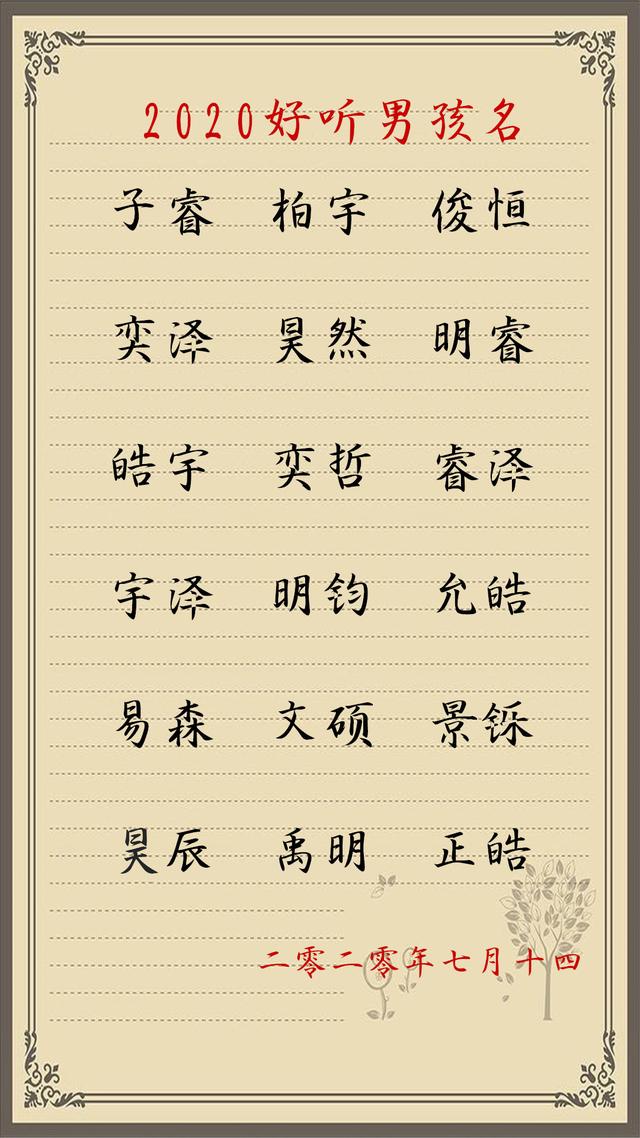 2020好听男孩名
子睿 柏宇 俊恒
奕泽 昊然 明睿
皓宇 奕哲 睿泽
宇泽 明钧 允皓
易森 文硕 景铄
昊辰 禹明 正皓
二零二零年七月十四